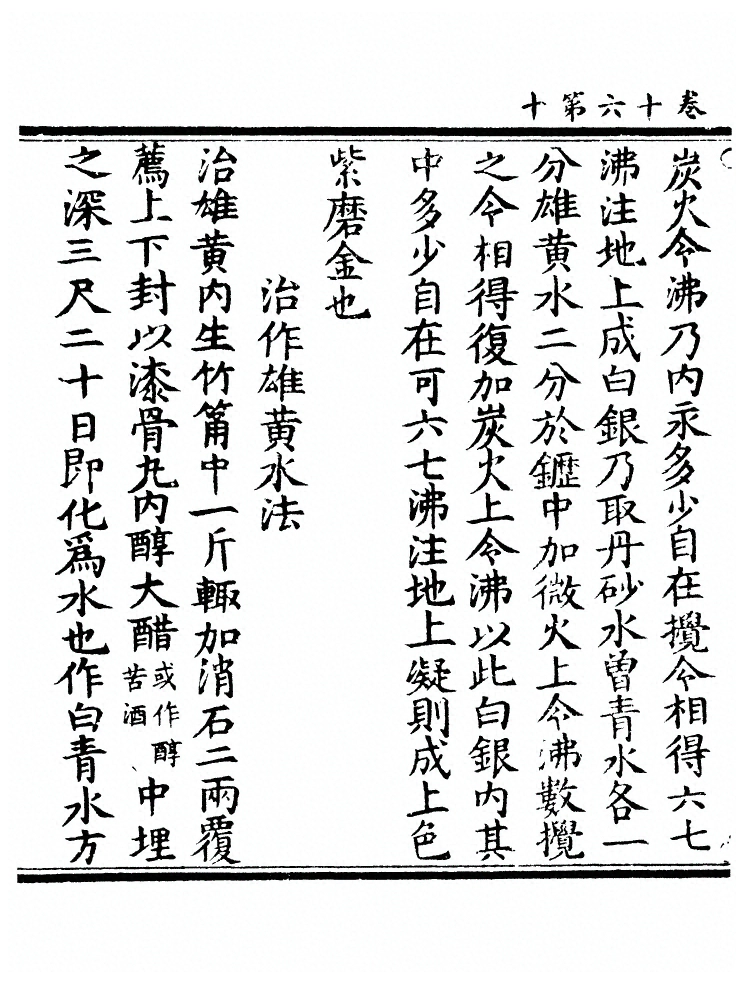 卷十六第十
炭火令沸乃内汞多少自在攪令相得六七
沸注地上成白銀乃取丹砂水曾青水各一
分雄黄水二分於鑩中加微火上令沸數攪
之令相得復加炭火上令沸以此白銀内其
中多少自在可六七沸注地上凝則成上色
紫磨金也
治作雄黄水法
治雄黄内生竹筩中一斤輙加消石二兩覆
薦上下封以漆骨丸内醇大醋或作醇苦酒中埋
之深三尺二十日即化爲水也作白青水方